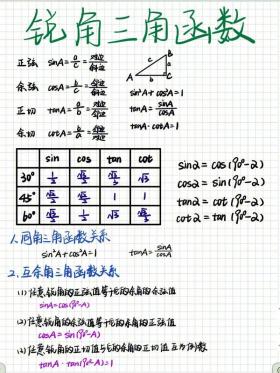 锐角三角函数
正弦 sinA = a/c = 对边/斜边
余弦 cosA = b/c = 邻边/斜边
正切 tanA = a/b = 对边/邻边
余切 cotA = b/a = 邻边/对边
A B C c a b
sin²A + cos²A = 1
tanA = sinA/cosA
tanA · cotA = 1
sin cos tan cot
30° 1/2 √3/2 √3/3 √3
45° √2/2 √2/2 1 1
60° √3/2 1/2 √3 √3/3
sin2 = cos(90°-2)
cos2 = sin(90°-2)
tan2 = cot(90°-2)
cot2 = tan(90°-2)
1.同角三角函数关系
sin²A + cos²A = 1 tanA = sinA/cosA
2.互余角三角函数关系
(1)任意锐角的正弦值等于它的余角的余弦值
sinA = cos(90°-A)
(2)任意锐角的余弦值等于它的余角的正弦值
cosA = sin(90°-A)
(3)任意锐角的正切值与它的余角的正切值互为倒数
tanA · tan(90°-A) = 1